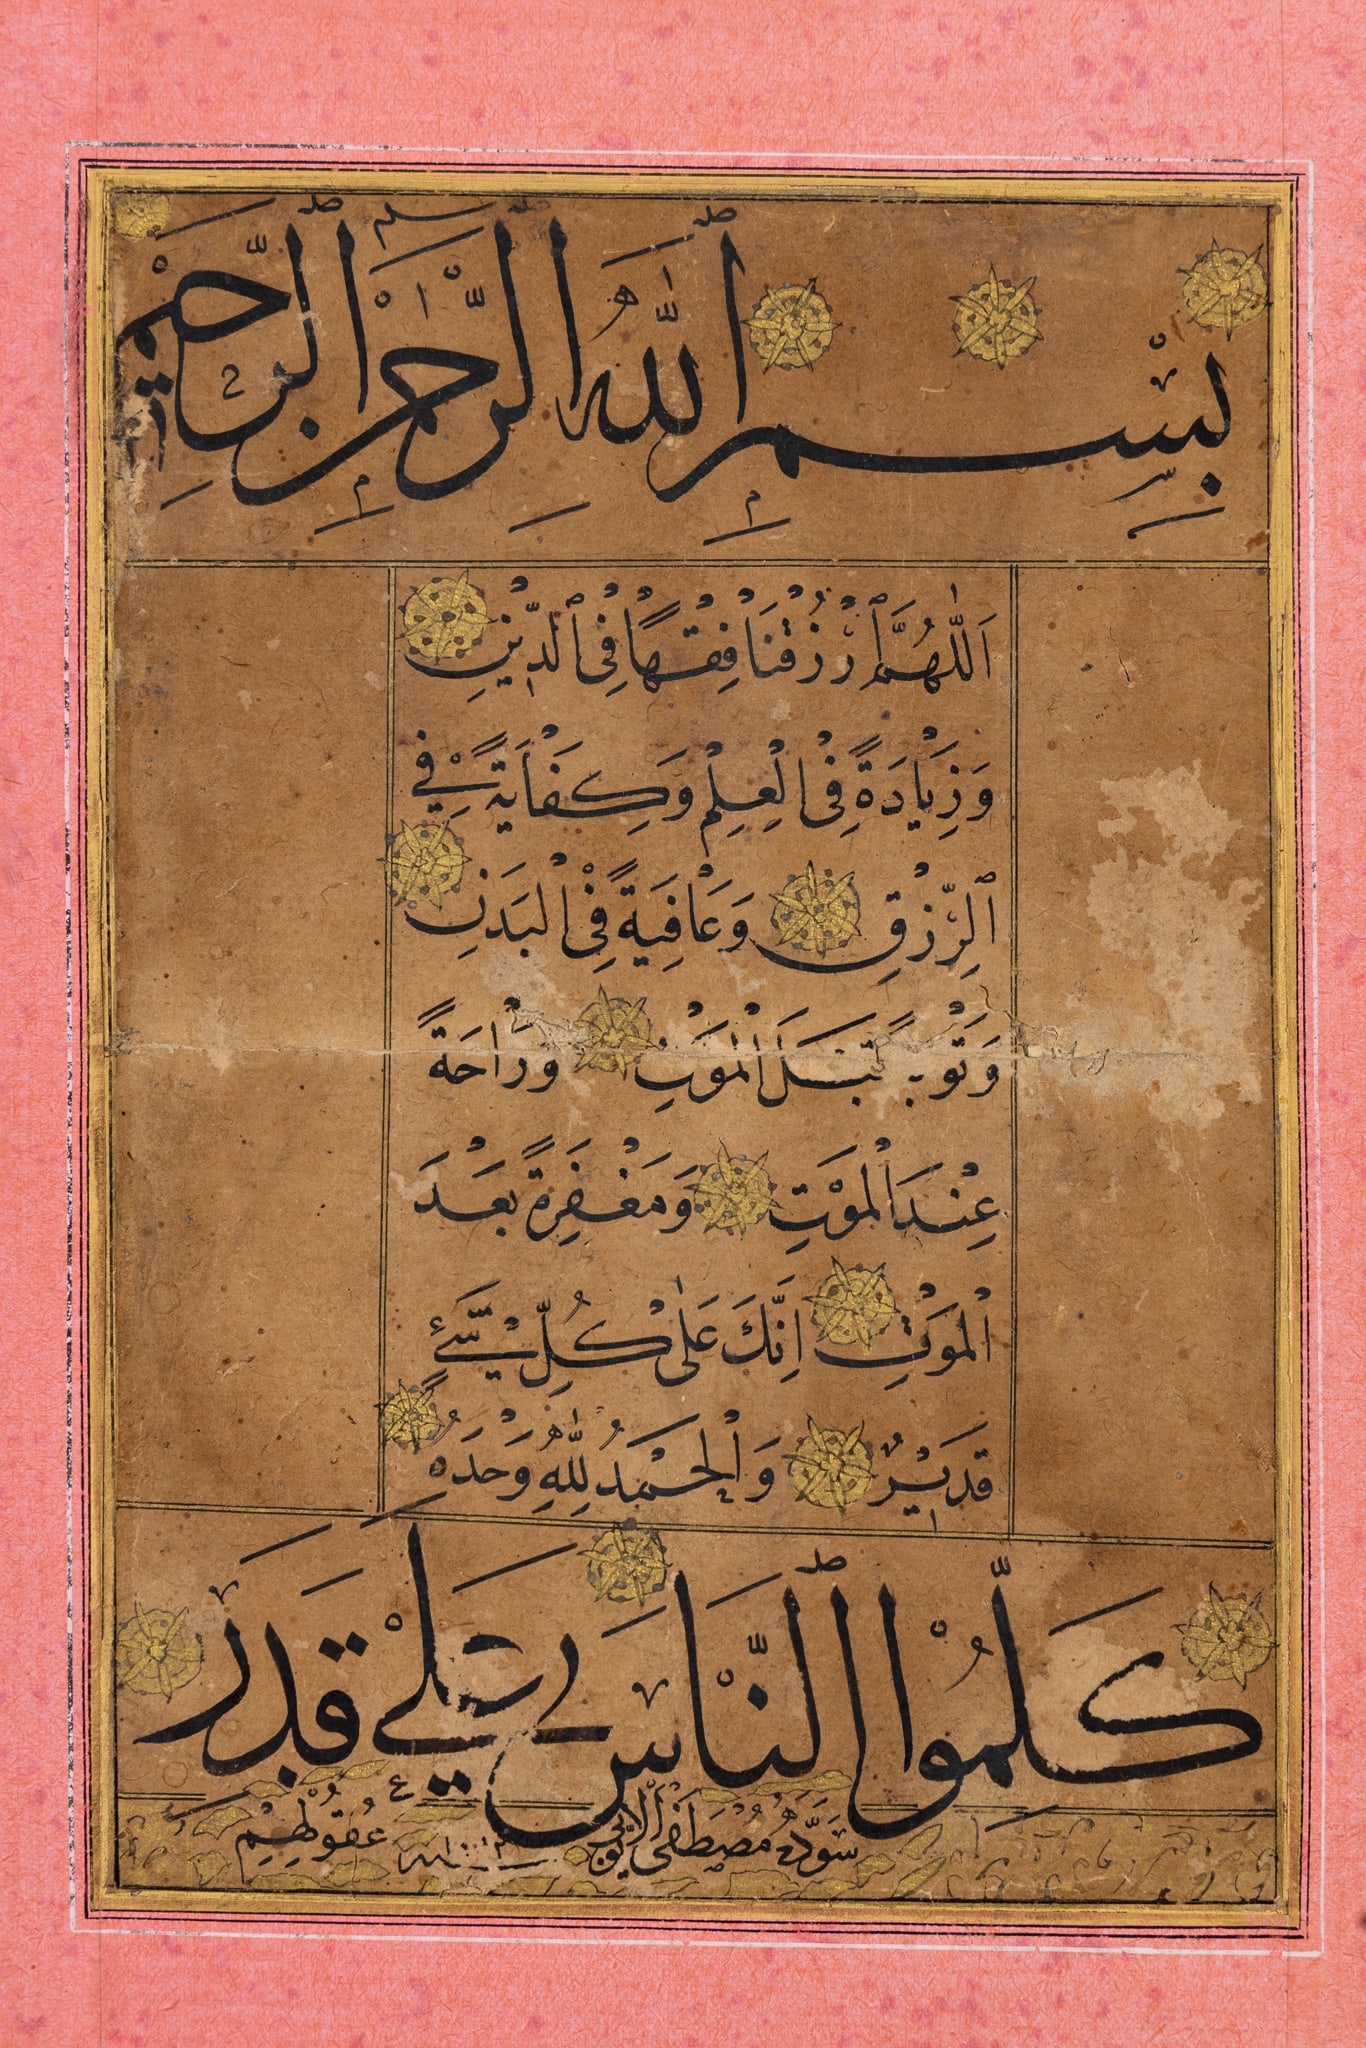 بِسْمِ اللّٰهِ الرَّحْمٰنِ الرَّحِيْمِ
اَللّٰهُمَّ ارْزُقْنَا فِقْهًا فِى الدّ۪ينِ
وَزِيَادَةً فِى الْعِلْمِ وَكِفَايَةً فِي
الرِّزْقِ وَعَافِيَةً فِى الْبَدَنِ
وَتَوْبَةً قَبْلَ الْمَوْتِ وَرَاحَةً
عِنْدَ الْمَوْتِ وَمَغْفِرَةً بَعْدَ
الْمَوْتِ اِنَّكَ عَلٰى كُلِّ شَيْءٍ
قَد۪يرٌ وَالْحَمْدُ لِلّٰهِ وَحْدَهُ
كَلِّمُوا النَّاسَ عَلٰي قَدَرِ
عُقُولِهِمْ
سَوَّدَهُ مُصْطَفَى الْاَيّوبى